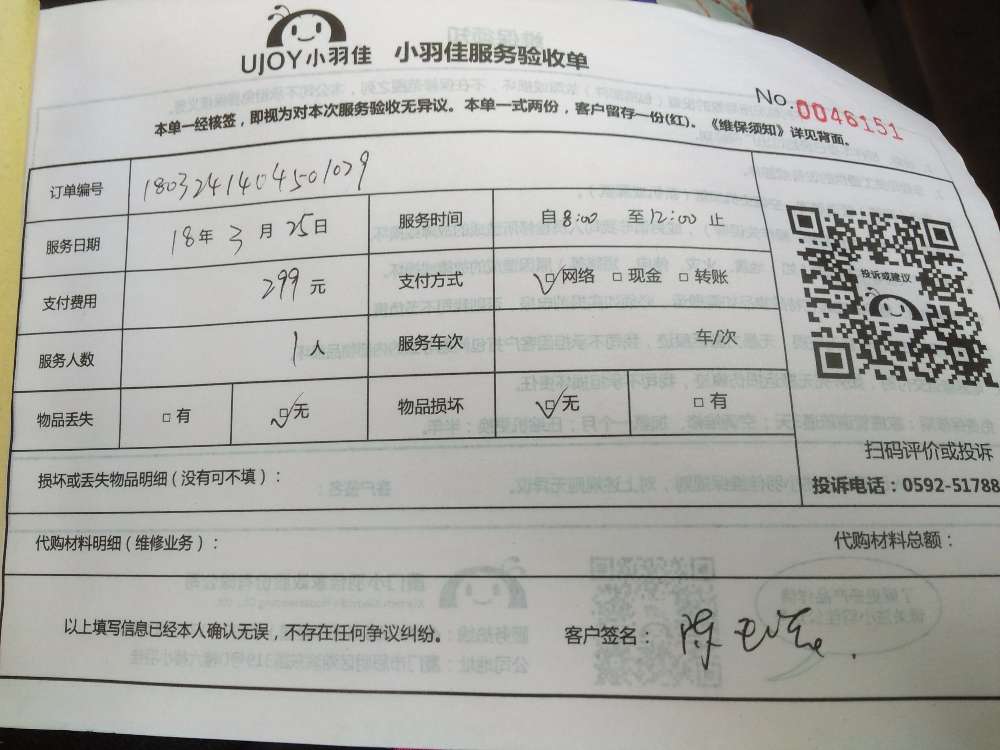 UJOY小羽佳 小羽佳服务验收单
No.0046151
本单一经核签，即视为对本次服务验收无异议。本单一式两份，客户留存一份(红)。《维保须知》详见背面。
订单编号 1803241404501029
服务日期 18年3月25日 服务时间 自8:00 至12:00止
支付费用 299元 支付方式 ☑网络 □现金 □转账
服务人数 1人 服务车次 车/次
物品丢失 □有 ☑无 物品损坏 ☑无 □有
投诉或建议
扫码评价或投诉
损坏或丢失物品明细（没有可不填）：
投诉电话：0592-51788
代购材料明细（维修业务）： 代购材料总额：
以上填写信息已经本人确认无误，不存在任何争议纠纷。 客户签名：陈